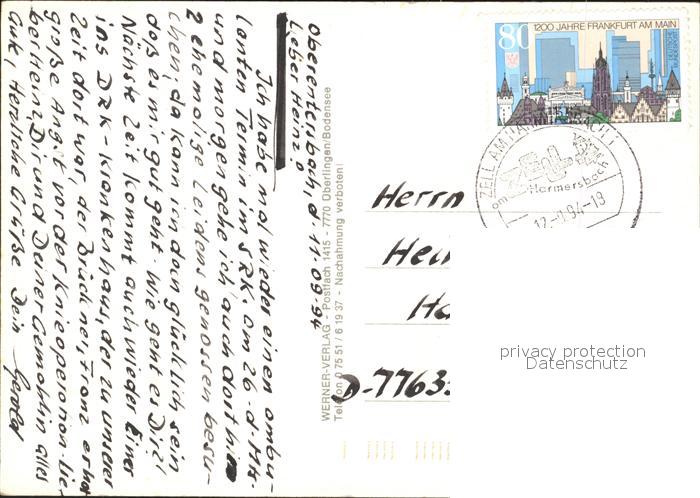 Oberentersbach, d. 11.09.94
Lieber Heinz!
Ich habe mal wieder einen ambu-
lanten Termin im SRK. am 26. d. Mts.
und morgen gehe ich auch dort hin
2 ehemalige Leidensgenossen besu-
chen, da kann ich dan glücklich sein
daß es mir gut geht. Wie geht es Dir?
Nächste Zeit kommt auch wieder Einer
ins DRK-Krankenhaus, der zu unserer
Zeit dort war, der Bückners, Franz er hat
große Angst vor der Knieoperation. Lie-
ber Heinz, Dir und Deiner Gemahlin alles
Gute, Herzliche Grüße Dein
WERNER-VERLAG - Postfach 1415 - 7770 Überlingen/Bodensee
Telefon 0 75 51 / 6 19 37 - Nachahmung verboten!
80
1200 JAHRE FRANKFURT AM MAIN
DEUTSCHE
BUNDESPOST
ZELL AM HARMERSBACH 1
am Harmersbach
94-18
Herrn
D-7763
privacy protection
Datenschutz